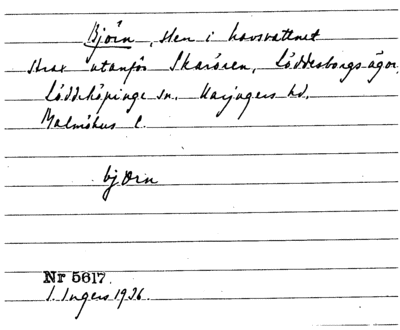 Björn, sten i havsvattnet
strax utanför Skarören, Löddesborgs ägor,
Löddeköpinge sn. Harjagers hd.
Malmöhus l.
bjørn
Nr 5617.
I. Ingers 1936.